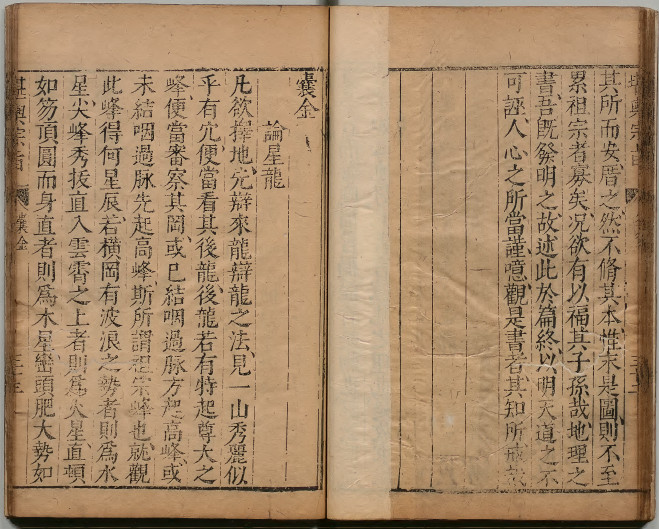 其所而安厝之然不脩其本惟末是圖則不至
累祖宗者寡矣况欲有以福其子孫哉地理之
書吾旣發明之故述此於篇終以明天道之不
可誣人心之所當謹噫觀是書者其知所戒哉
囊金
論星龍
凡欲擇地先辯來龍辯龍之法見一山秀麗似
乎有穴便當看其後龍後龍若有特起尊大之
峰便當審察其岡或已結咽過脉方起高峰或
未結咽過脉先起高峰斯所謂祖宗峰也就觀
此峰得何星辰若橫岡有波浪之勢者則爲水
星尖峰秀拔直入雲霄之上者則爲火星直頓
如笏頂圓而身直者則爲木星巒頭肥大勢如
堪輿宗旨 囊金